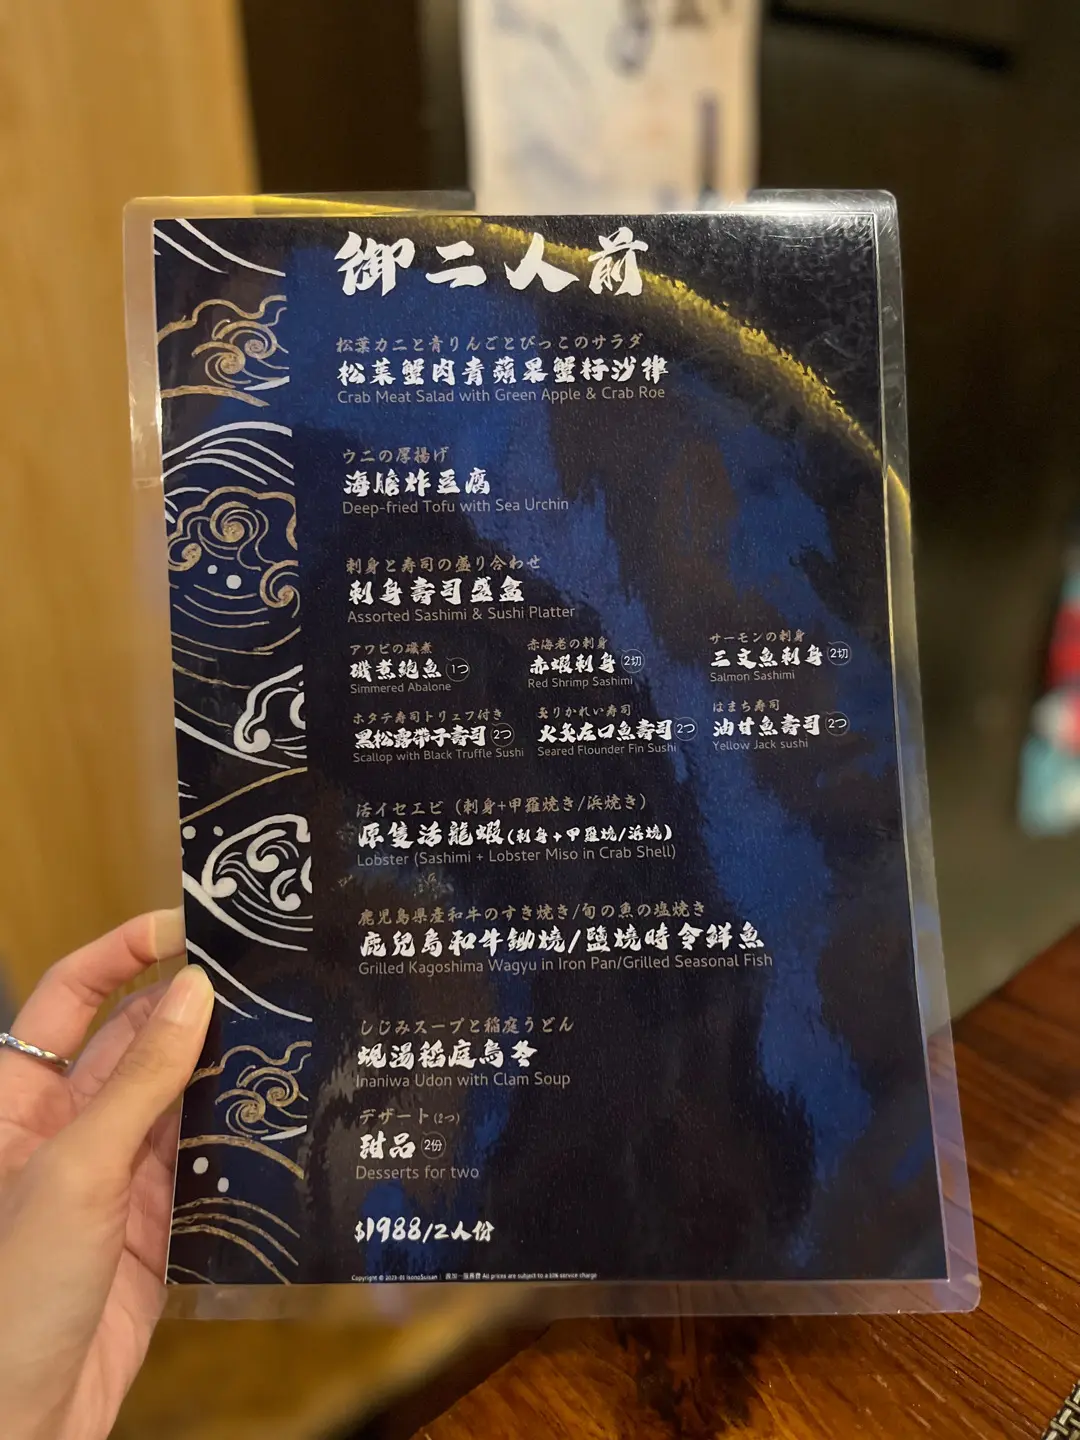 御二人前
松葉カニと青りんごとびっこのサラダ
松葉蟹肉青蘋果蟹籽沙律
Crab Meat Salad with Green Apple & Crab Roe
ウニの厚揚げ
海膽炸豆腐
Deep-fried Tofu with Sea Urchin
刺身と寿司の盛り合わせ
刺身壽司盛盒
Assorted Sashimi & Sushi Platter
アワビの磯煮
磯煮鮑魚 1つ
Simmered Abalone
赤海老の刺身
赤蝦刺身 2切
Red Shrimp Sashimi
サーモンの刺身
三文魚刺身 2切
Salmon Sashimi
ホタテ寿司トリュフ付き
黑松露帶子壽司 2つ
Scallop with Black Truffle Sushi
炙りかれい寿司
火炙左口魚壽司 2つ
Seared Flounder Fin Sushi
はまち寿司
油甘魚壽司 2つ
Yellow Jack sushi
活イセエビ（刺身+甲羅焼き/浜焼き）
原隻活龍蝦(刺身+甲羅燒/浜燒)
Lobster (Sashimi + Lobster Miso in Crab Shell)
鹿児島県産和牛のすき焼き/旬の魚の塩焼き
鹿兒島和牛鋤燒/鹽燒時令鮮魚
Grilled Kagoshima Wagyu in Iron Pan/Grilled Seasonal Fish
しじみスープと稲庭うどん
蜆湯稻庭烏冬
Inaniwa Udon with Clam Soup
デザート(2つ)
甜品 2份
Desserts for two
$1988/2人份
All prices are subject to a 10% service charge